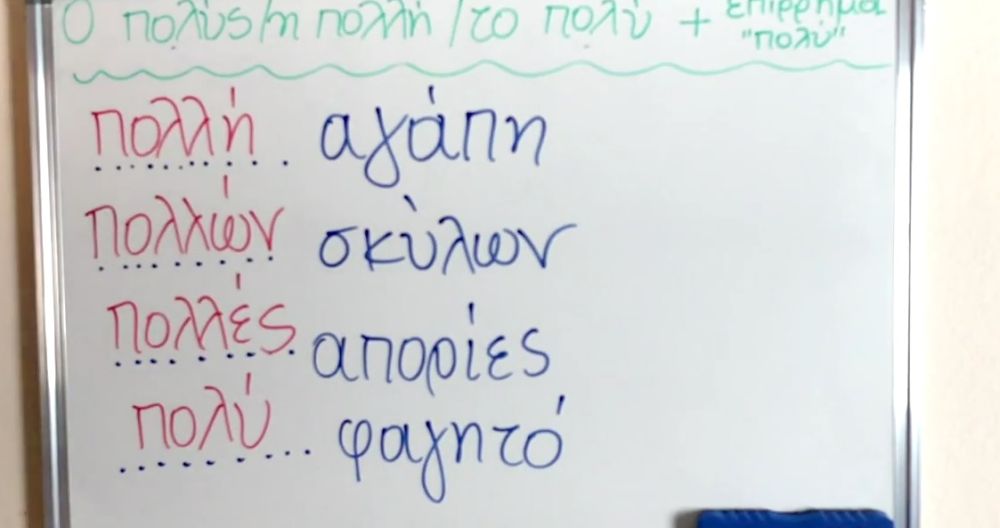 ο πολύς/η πολλή/το πολύ + επίρρημα "πολύ"
πολλή αγάπη
πολλών σκύλων
πολλές απορίες
πολύ φαγητό